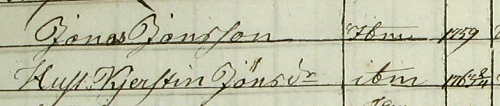 Jonas Jönsson Ibm 1759
Hust. Kjerstin Jönsdr ibm 1763 2/4